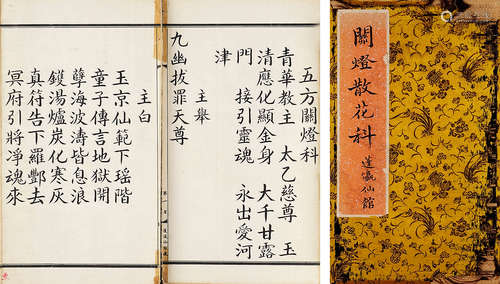 關燈散花科
蓬瀛仙館
五方關燈科
青華教主 太乙慈尊 玉
清應化顯金身 大千甘露
門 接引靈魂 永出愛河
津
主舉
九幽拔罪天尊
主白
玉京仙範下瑤階
童子傳言地獄開
孽海波濤皆息浪
鑊湯爐炭化寒灰
真符告下羅酆去
冥府引將淨魂來